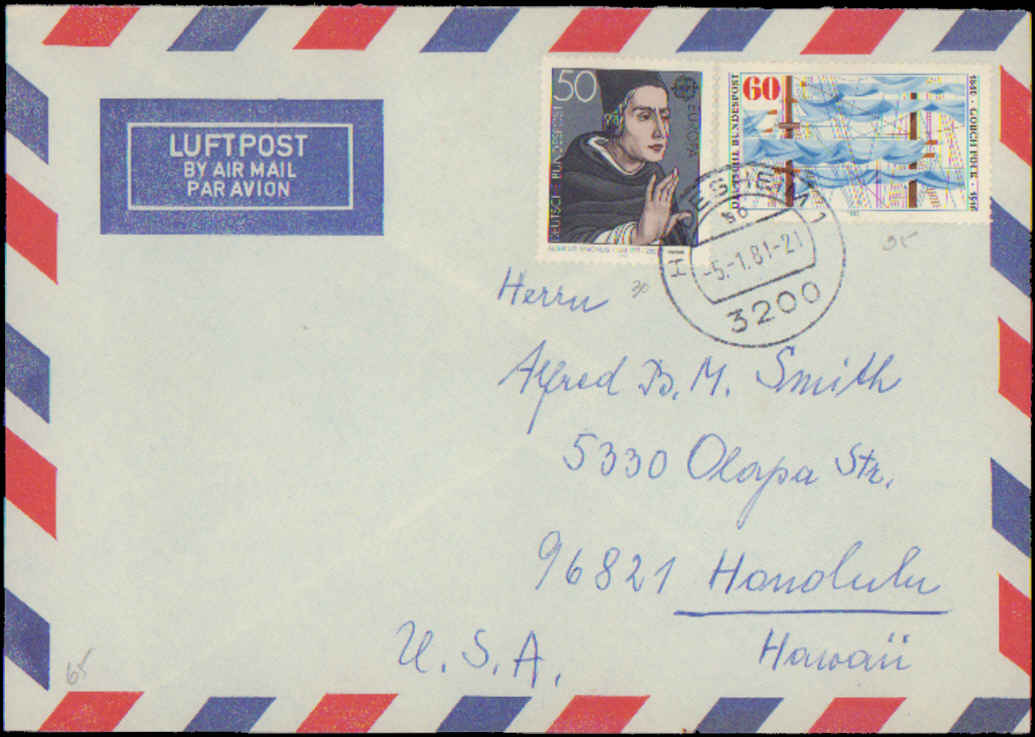 LUFTPOST
BY AIR MAIL
PAR AVION
50
EUROPA
DEUTSCHE BUNDESPOST
60
DEUTSCHE BUNDESPOST
GORCH FOCK
HILDESHEIM 1
-5.-1.81-21
3200
30
95
Herrn
Alfred B. M. Smith
5330 Olapa Str.
96821 Honolulu
Hawaii
U. S. A.
65